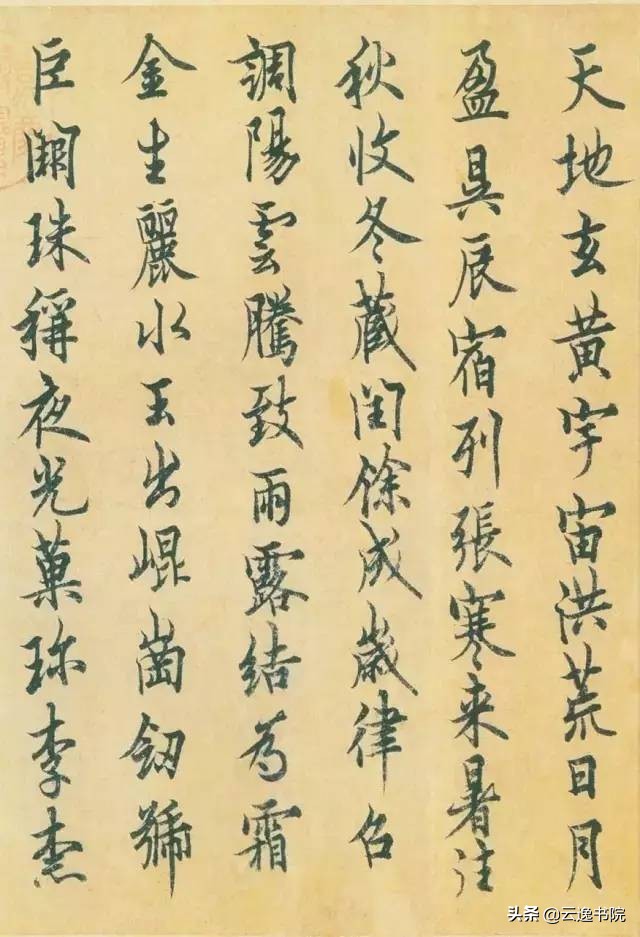 天地玄黄宇宙洪荒日月
盈昃辰宿列張寒来暑往
秋收冬蔵閏餘成歲律召
調陽雲騰致雨露結為霜
金生麗水玉出崐崗劒號
巨闕珠稱夜光菓珎李柰
头条 @云逸书院